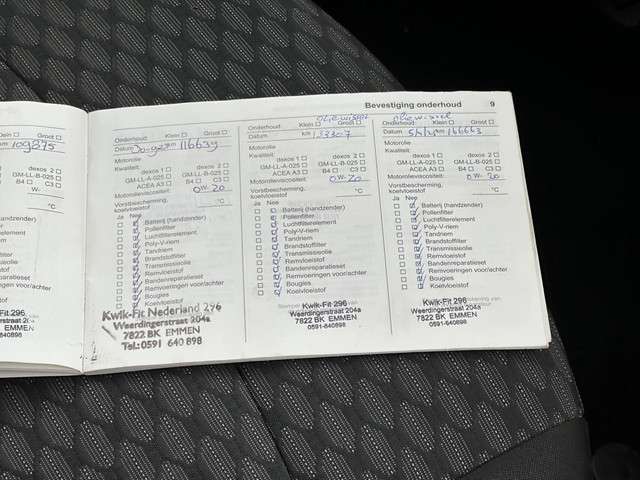 Klein Groot
109875
dexos 2
GM-LL-B-025
C3
W-
°C
Kwik-Fit 296
Weerdingerstraat 204a
7822 BK EMMEN
0591-640898
Bevestiging onderhoud 9
Onderhoud: Klein Groot
Datum km 116639
Motorolie
Kwaliteit:
dexos 1 dexos 2
GM-LL-A-025 GM-LL-B-025
ACEA A3 B4 C3
Motorolieviscositeit: 0W-20
Vorstbescherming,
koelvloeistof °C
Ja Nee
Batterij (handzender)
Pollenfilter
Luchtfilterelement
Poly-V-riem
Tandriem
Brandstoffilter
Transmissieolie
Remvloeistof
Bandenreparatieset
Remvoeringen voor/achter
Bougies
Koelvloeistof
Kwik-Fit Nederland 296
Weerdingerstraat 204a
7822 BK EMMEN
Tel.:0591 640 898
Onderhoud: Klein Groot
Datum km 133307
Motorolie
Kwaliteit:
dexos 1 dexos 2
GM-LL-A-025 GM-LL-B-025
ACEA A3 B4 C3
Motorolieviscositeit: 0W-20
Vorstbescherming,
koelvloeistof °C
Ja Nee
Batterij (handzender)
Pollenfilter
Luchtfilterelement
Poly-V-riem
Tandriem
Brandstoffilter
Transmissieolie
Remvloeistof
Bandenreparatieset
Remvoeringen voor/achter
Bougies
Koelvloeistof
Kwik-Fit 296
Weerdingerstraat 204a
7822 BK EMMEN
0591-640898
Onderhoud: Klein Groot
Datum km 166663
Motorolie
Kwaliteit:
dexos 1 dexos 2
GM-LL-A-025 GM-LL-B-025
ACEA A3 B4 C3
Motorolieviscositeit: 0W-20
Vorstbescherming,
koelvloeistof °C
Ja Nee
Batterij (handzender)
Pollenfilter
Luchtfilterelement
Poly-V-riem
Tandriem
Brandstoffilter
Transmissieolie
Remvloeistof
Bandenreparatieset
Remvoeringen voor/achter
Bougies
Koelvloeistof
Kwik-Fit 296
Weerdingerstraat 204a
7822 BK EMMEN
0591-640898